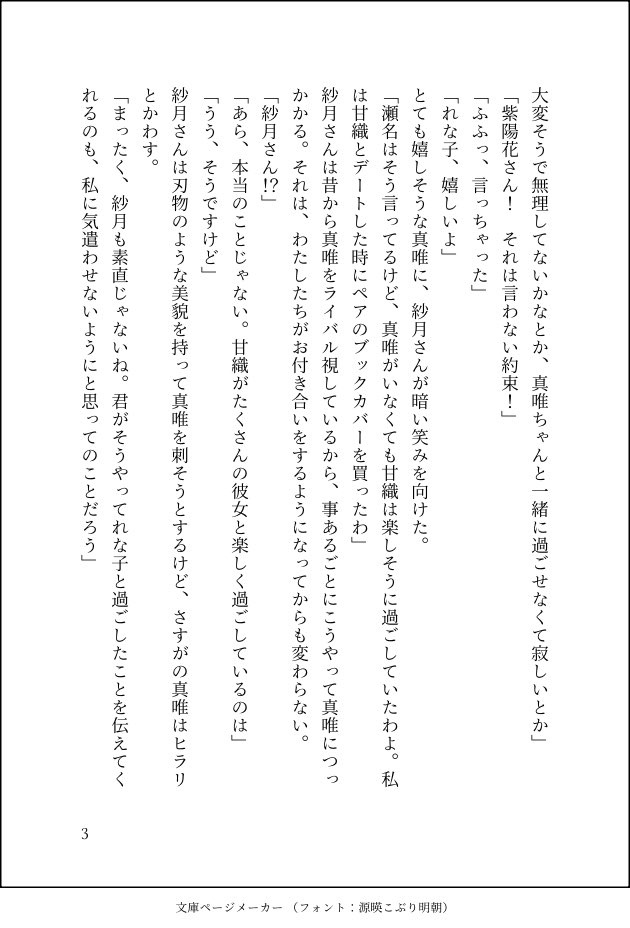 大変そうで無理してないかなとか、真唯ちゃんと一緒に過ごせなくて寂しいとか」
「紫陽花さん！　それは言わない約束！」
「ふふっ、言っちゃった」
「れな子、嬉しいよ」
とても嬉しそうな真唯に、紗月さんが暗い笑みを向けた。
「瀬名はそう言ってるけど、真唯がいなくても甘織は楽しそうに過ごしていたわよ。私
は甘織とデートした時にペアのブックカバーを買ったわ」
紗月さんは昔から真唯をライバル視しているから、事あるごとにこうやって真唯につっ
かかる。それは、わたしたちがお付き合いをするようになってからも変わらない。
「紗月さん!?」
「あら、本当のことじゃない。甘織がたくさんの彼女と楽しく過ごしているのは」
「うう、そうですけど」
紗月さんは刃物のような美貌を持って真唯を刺そうとするけど、さすがの真唯はヒラリ
とかわす。
「まったく、紗月も素直じゃないね。君がそうやってれな子と過ごしたことを伝えてく
れるのも、私に気遣わせないようにと思ってのことだろう」
3
文庫ページメーカー （フォント：源暎こぶり明朝）